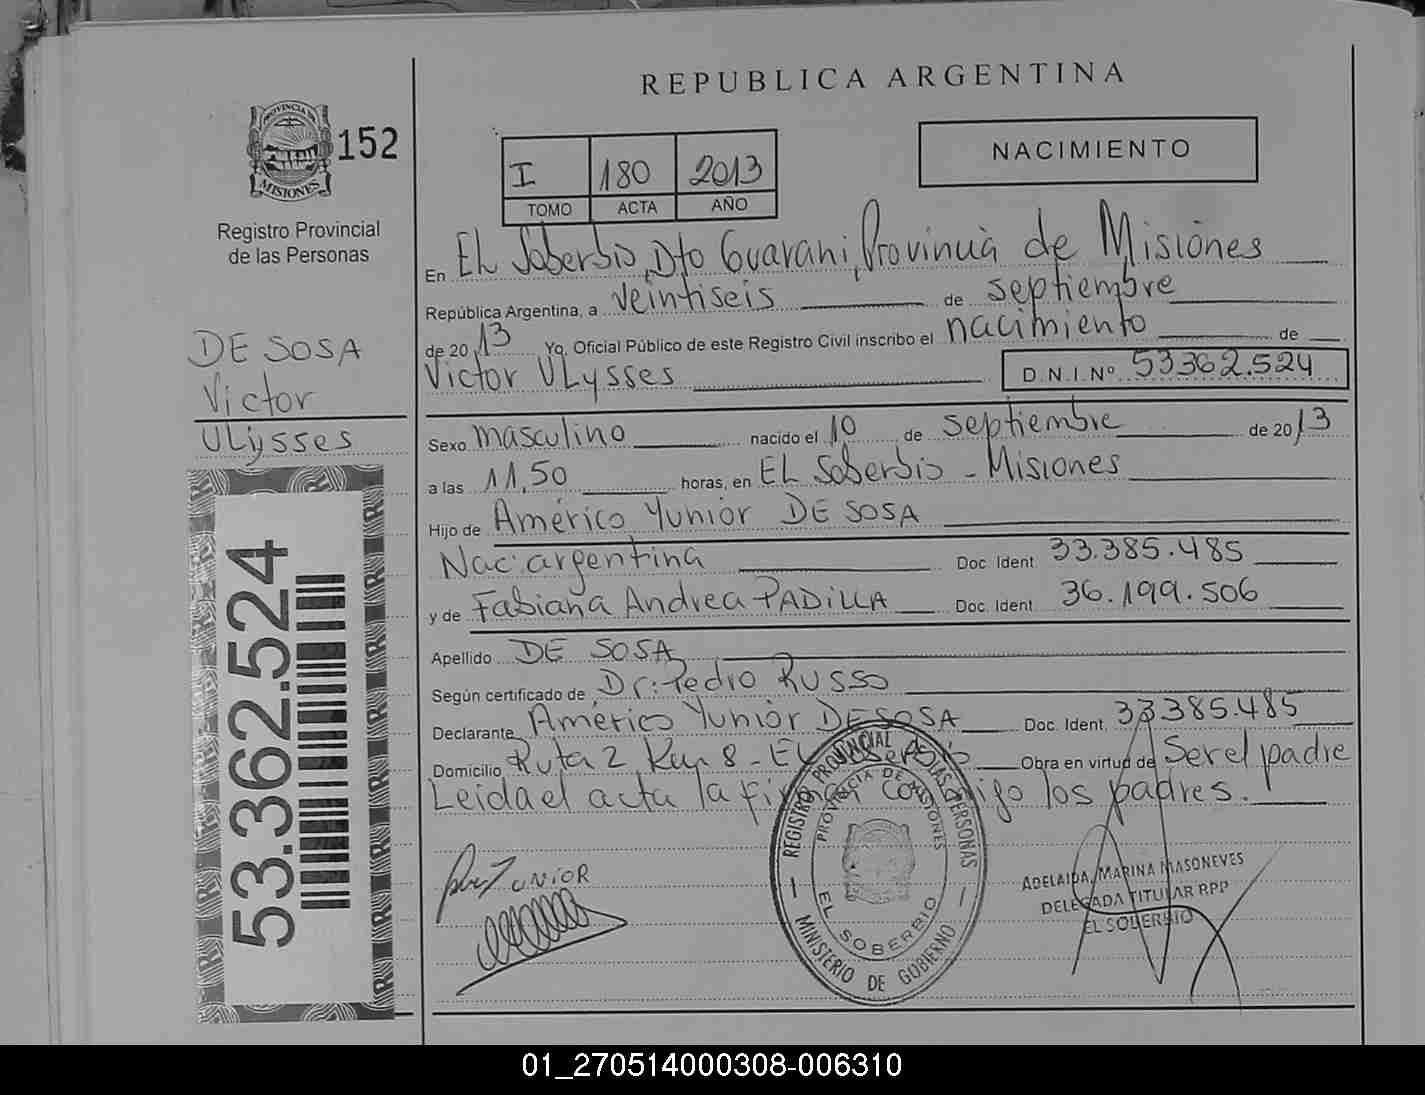 REPUBLICA ARGENTINA
PROVINCIA DE
MISIONES
152
Registro Provincial
de las Personas
I 180 2013
TOMO ACTA AÑO
NACIMIENTO
En EL Soberbio, Dto Guarani, Provincia de Misiones
República Argentina, a veintiseis de septiembre
de 2013 Yo, Oficial Público de este Registro Civil inscribo el nacimiento de
Victor ULysses D.N.I.Nº 53362.524
DE SOSA
Victor
ULysses
Sexo masculino nacido el 10 de septiembre de 2013
a las 11,50 horas, en EL Soberbio - Misiones
Hijo de Américo Yunior DE SOSA
Nac: argentina Doc. Ident. 33.385.485
y de Fabiana Andrea PADILLA Doc. Ident. 36.199.506
Apellido DE SOSA
Según certificado de Dr: Pedro RUSSO
Declarante Américo Yunior DE SOSA Doc. Ident. 33385.485
Domicilio Ruta 2 Km 8 - EL Soberbio Obra en virtud de Ser el padre
Leida el acta la firman conmigo los padres.
53.362.524
JUNIOR
REGISTRO PROVINCIAL DE LAS PERSONAS
MINISTERIO DE GOBIERNO
PROVINCIA DE MISIONES
EL SOBERBIO
ADELAIDA MARINA MASONEVES
DELEGADA TITULAR RPP
EL SOBERBIO
01_270514000308-006310